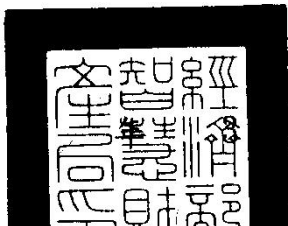 經濟部
智慧財
產局